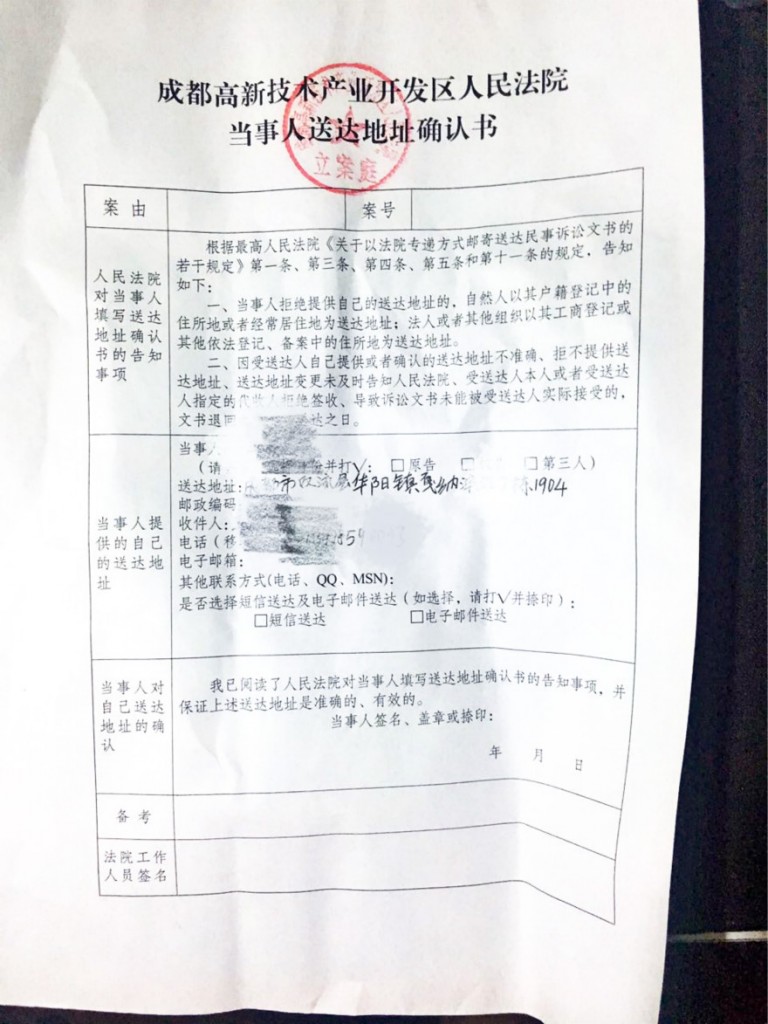 成都高新技术产业开发区人民法院
当事人送达地址确认书
立案庭
案由
案号
人民法院
对当事人
填写送达
地址确认
书的告知
事项
根据最高人民法院《关于以法院专递方式邮寄送达民事诉讼文书的
若干规定》第一条、第三条、第四条、第五条和第十一条的规定，告知
如下：
一、当事人拒绝提供自己的送达地址的，自然人以其户籍登记中的
住所地或者经常居住地为送达地址；法人或者其他组织以其工商登记或
其他依法登记、备案中的住所地为送达地址。
二、因受送达人自己提供或者确认的送达地址不准确、拒不提供送
达地址、送达地址变更未及时告知人民法院、受送达人本人或者受送达
人指定的代收人拒绝签收、导致诉讼文书未能被受送达人实际接受的，
文书退回 达之日。
当事人提
供的自己
的送达地
址
当事人
（请 并打√： □原告 □ □第三人）
送达地址： 市双流县华阳镇 1904
邮政编码
收件人：
电话（移 059
电子邮箱：
其他联系方式(电话、QQ、MSN)：
是否选择短信送达及电子邮件送达（如选择，请打√并捺印）：
□短信送达 □电子邮件送达
当事人对
自己送达
地址的确
认
我已阅读了人民法院对当事人填写送达地址确认书的告知事项，并
保证上述送达地址是准确的、有效的。
当事人签名、盖章或捺印：
年 月 日
备考
法院工作
人员签名